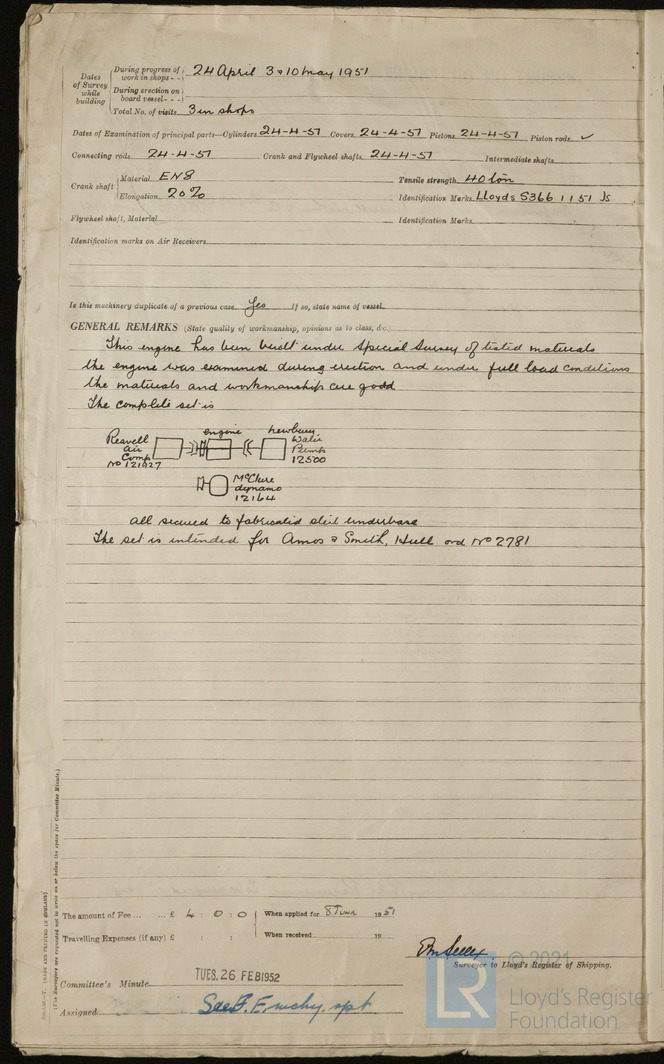 Dates of Survey while building
During progress of work in shops - - 24 April 3 & 10 May 1951
During erection on board vessel - - -
Total No. of visits 3 in shops
Dates of Examination of principal parts—Cylinders 24-4-51 Covers 24-4-51 Pistons 24-4-51 Piston rods ✓
Connecting rods 24-4-51 Crank and Flywheel shafts 24-4-51 Intermediate shafts
Crank shaft Material EN8 Tensile strength 40 ton
Elongation 20% Identification Marks Lloyds S366 1 1 51 Js
Flywheel shaft, Material Identification Marks
Identification marks on Air Receivers
Is this machinery duplicate of a previous case Yes If so, state name of vessel
GENERAL REMARKS (State quality of workmanship, opinions as to class, &c.)
This engine has been built under Special Survey of tested materials
the engine was examined during erection and under full load conditions
the materials and workmanship are good
The complete set is
Reavell air Comp No 121927
engine
Newbury Water Pump 12500
McClure dynamo 12164
all secured to fabricated steel underbase
The set is intended for Amos & Smith, Hull ord No 2781
The amount of Fee ... ... £ 4 : 0 : 0 When applied for 8 June 1951
Travelling Expenses (if any) £ : : When received 19
Surveyor to Lloyd's Register of Shipping.
© 2021
Committee's Minute TUES. 26 FEB 1952
Assigned
LR
Lloyd's Register
Foundation
(MADE AND PRINTED IN ENGLAND)
(The Surveyors are requested not to write on or below the space for Committee Minute.)